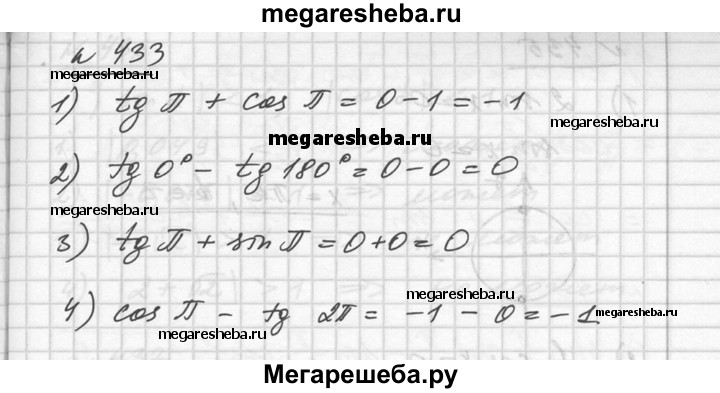 megaresheba.ru
№ 433
megaresheba.ru
1) tg π + cos π = 0 - 1 = -1
megaresheba.ru
megaresheba.ru
2) tg 0° - tg 180° = 0 - 0 = 0
megaresheba.ru
3) tg π + sin π = 0 + 0 = 0
megaresheba.ru
4) cos π - tg 2π = -1 - 0 = -1
megaresheba.ru
megaresheba.ru
Мегарешеба.ру